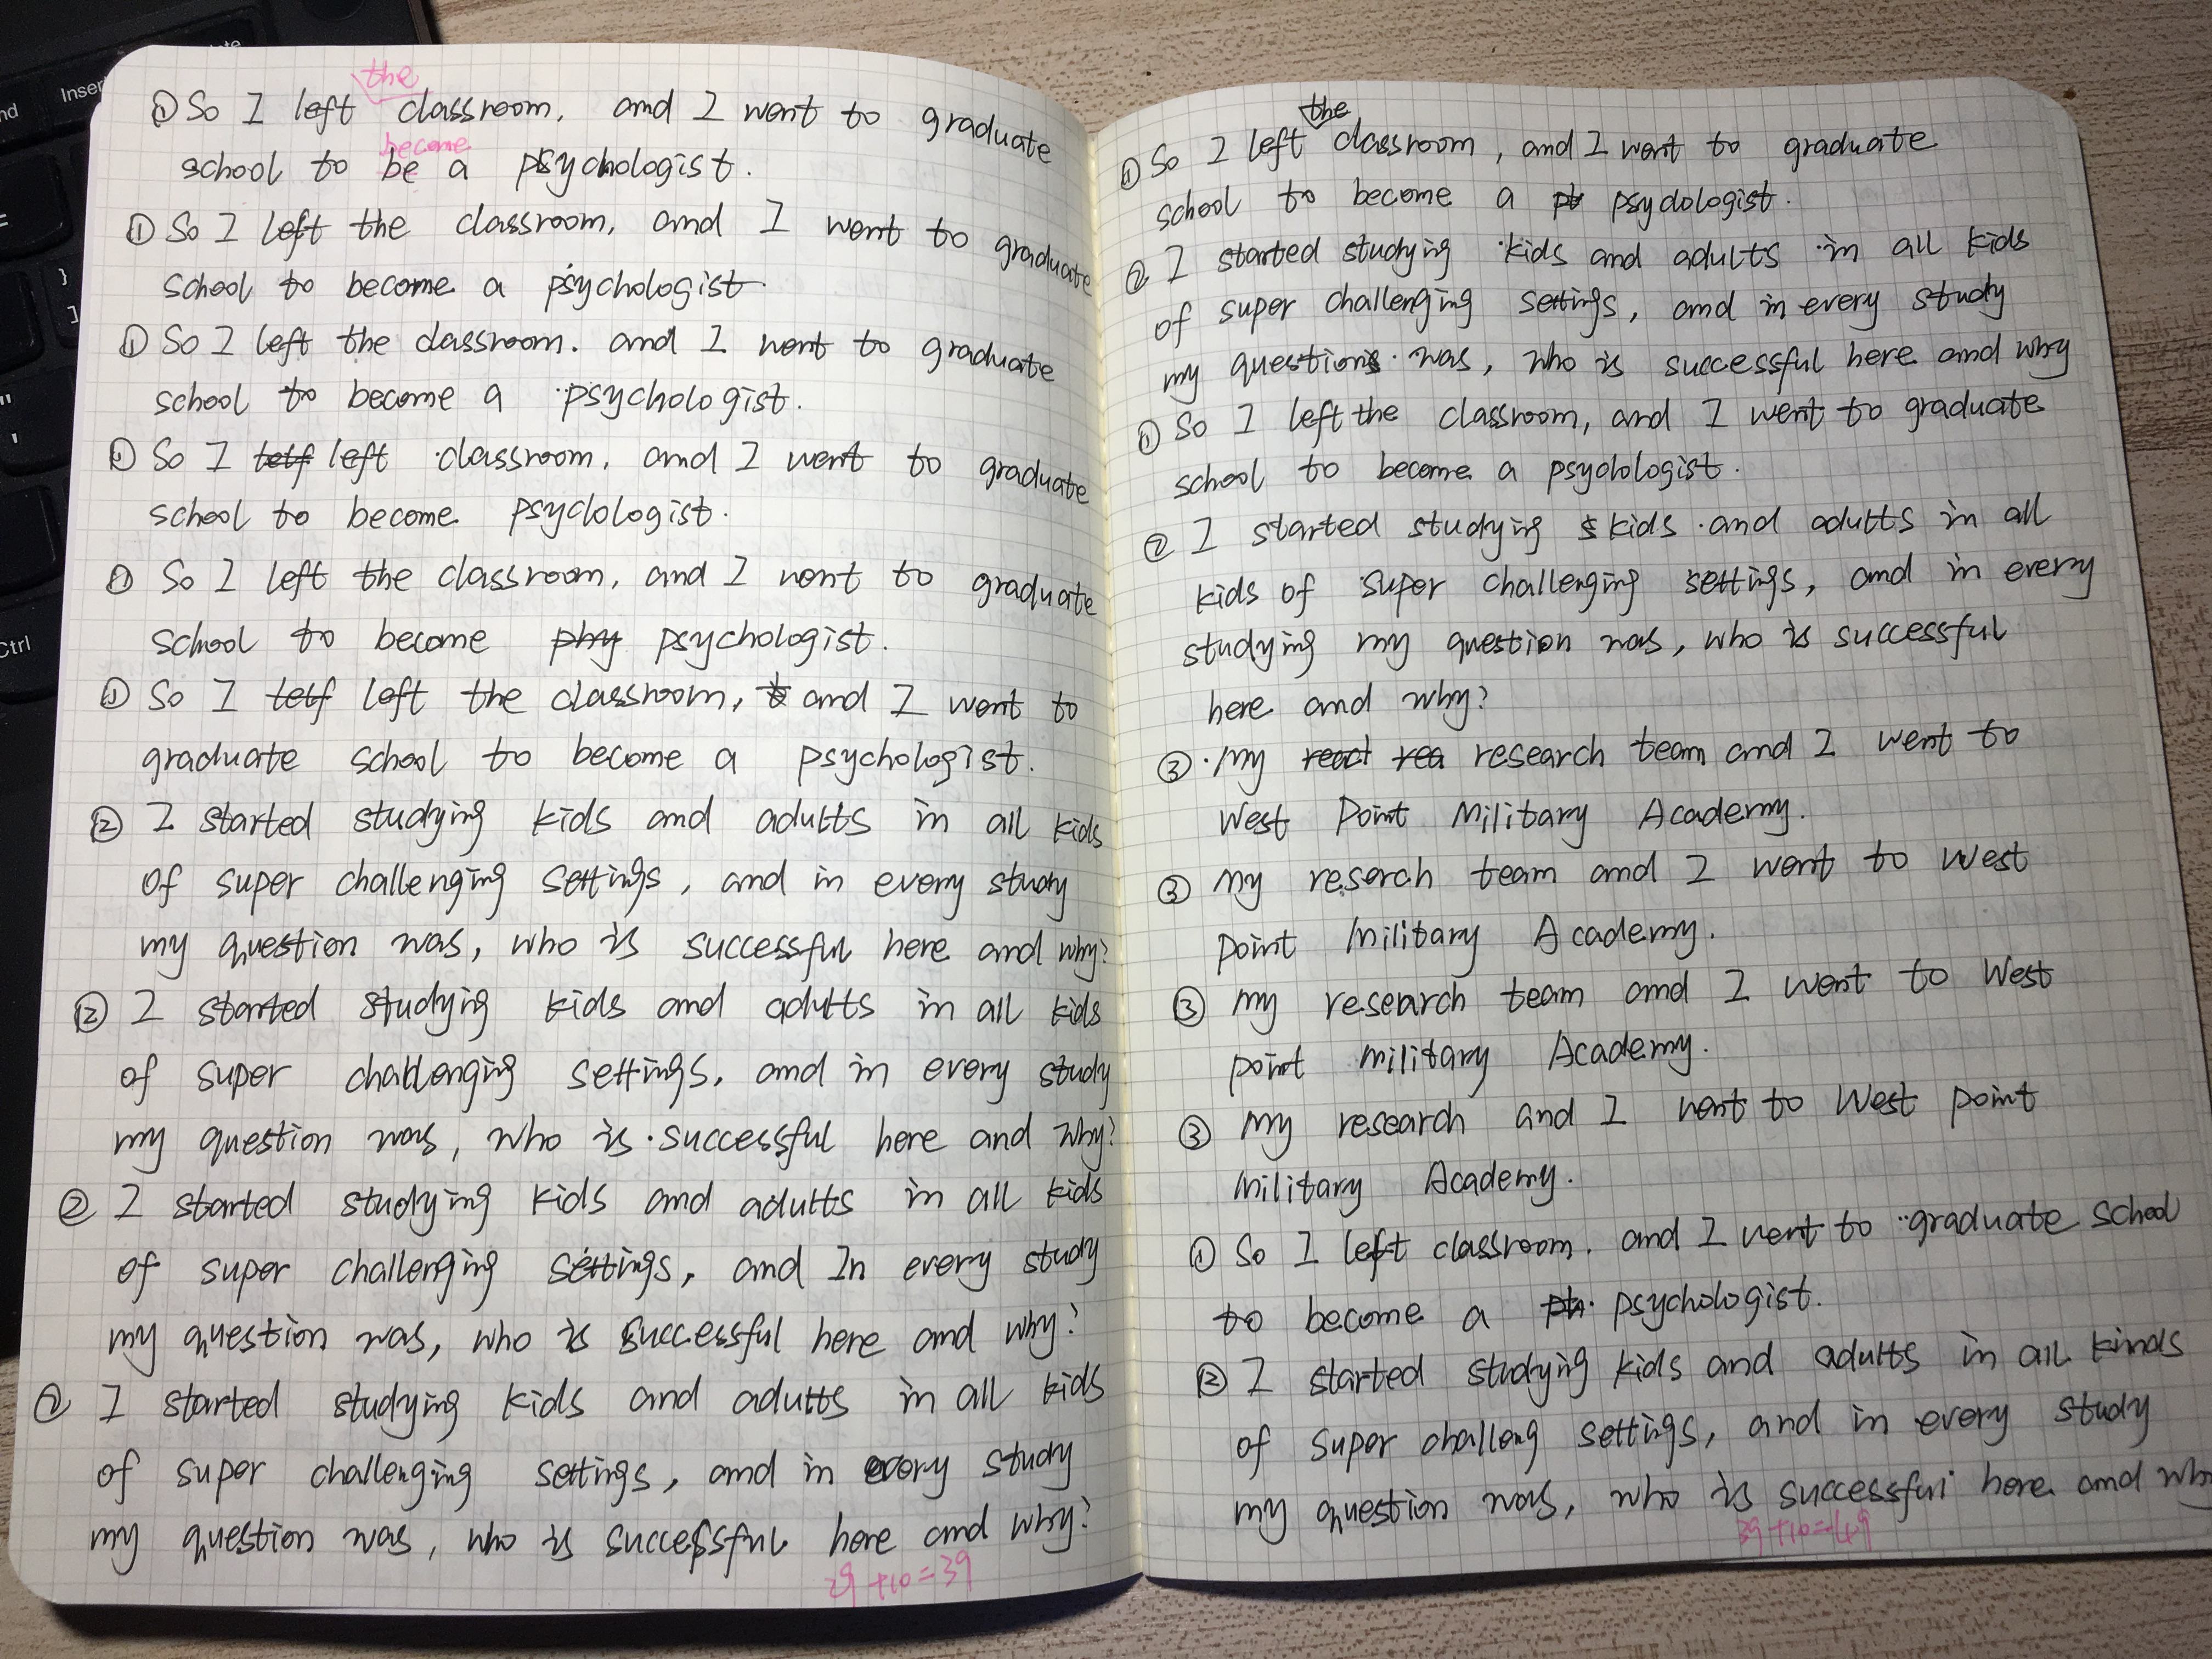 the
① So I left classroom, and I went to graduate
become
school to be a psychologist.
① So I left the classroom, and I went to graduate
school to become a psychologist.
① So I left the classroom. and I went to graduate
school to become a psychologist.
① So I telf left classroom, and I went to graduate
school to become psyclologist.
① So I left the classroom, and I went to graduate
school to become phy psychologist.
① So I telf left the classroom, and I went to
graduate school to become a psychologist.
② I started studying kids and adults in all kids
of super challenging settings, and in every study
my question was, who is successful here and why?
② I started studying kids and adults in all kids
of super challenging settings, and in every study
my question was, who is successful here and why?
② I started studying kids and adults in all kids
of super challenging settings, and In every study
my question was, who is successful here and why?
② I started studying kids and adults in all kids
of super challenging settings, and in every study
my question was, who is successful here and why?
29+10=39
the
① So I left classroom, and I went to graduate
school to become a ph psydologist.
② I started studying kids and adults in all kids
of super challenging settings, and in every study
my questions was, who is successful here and why
① So I left the classroom, and I went to graduate
school to become a psyclologist.
② I started studying s kids and adults in all
kids of super challenging settings, and in every
studying my question was, who is successful
here and why?
③ My react rea research team and I went to
West Point Military Academy.
③ My reserch team and I went to West
Point Military Academy.
③ My research team and I went to West
point military Academy.
③ My research and I went to West point
Military Academy.
① So I left classroom. and I went to graduate school
to become a ph psychologist.
② I started studying kids and adults in all kinds
of super challeng settings, and in every study
my question was, who is successful here and why
39+10=49